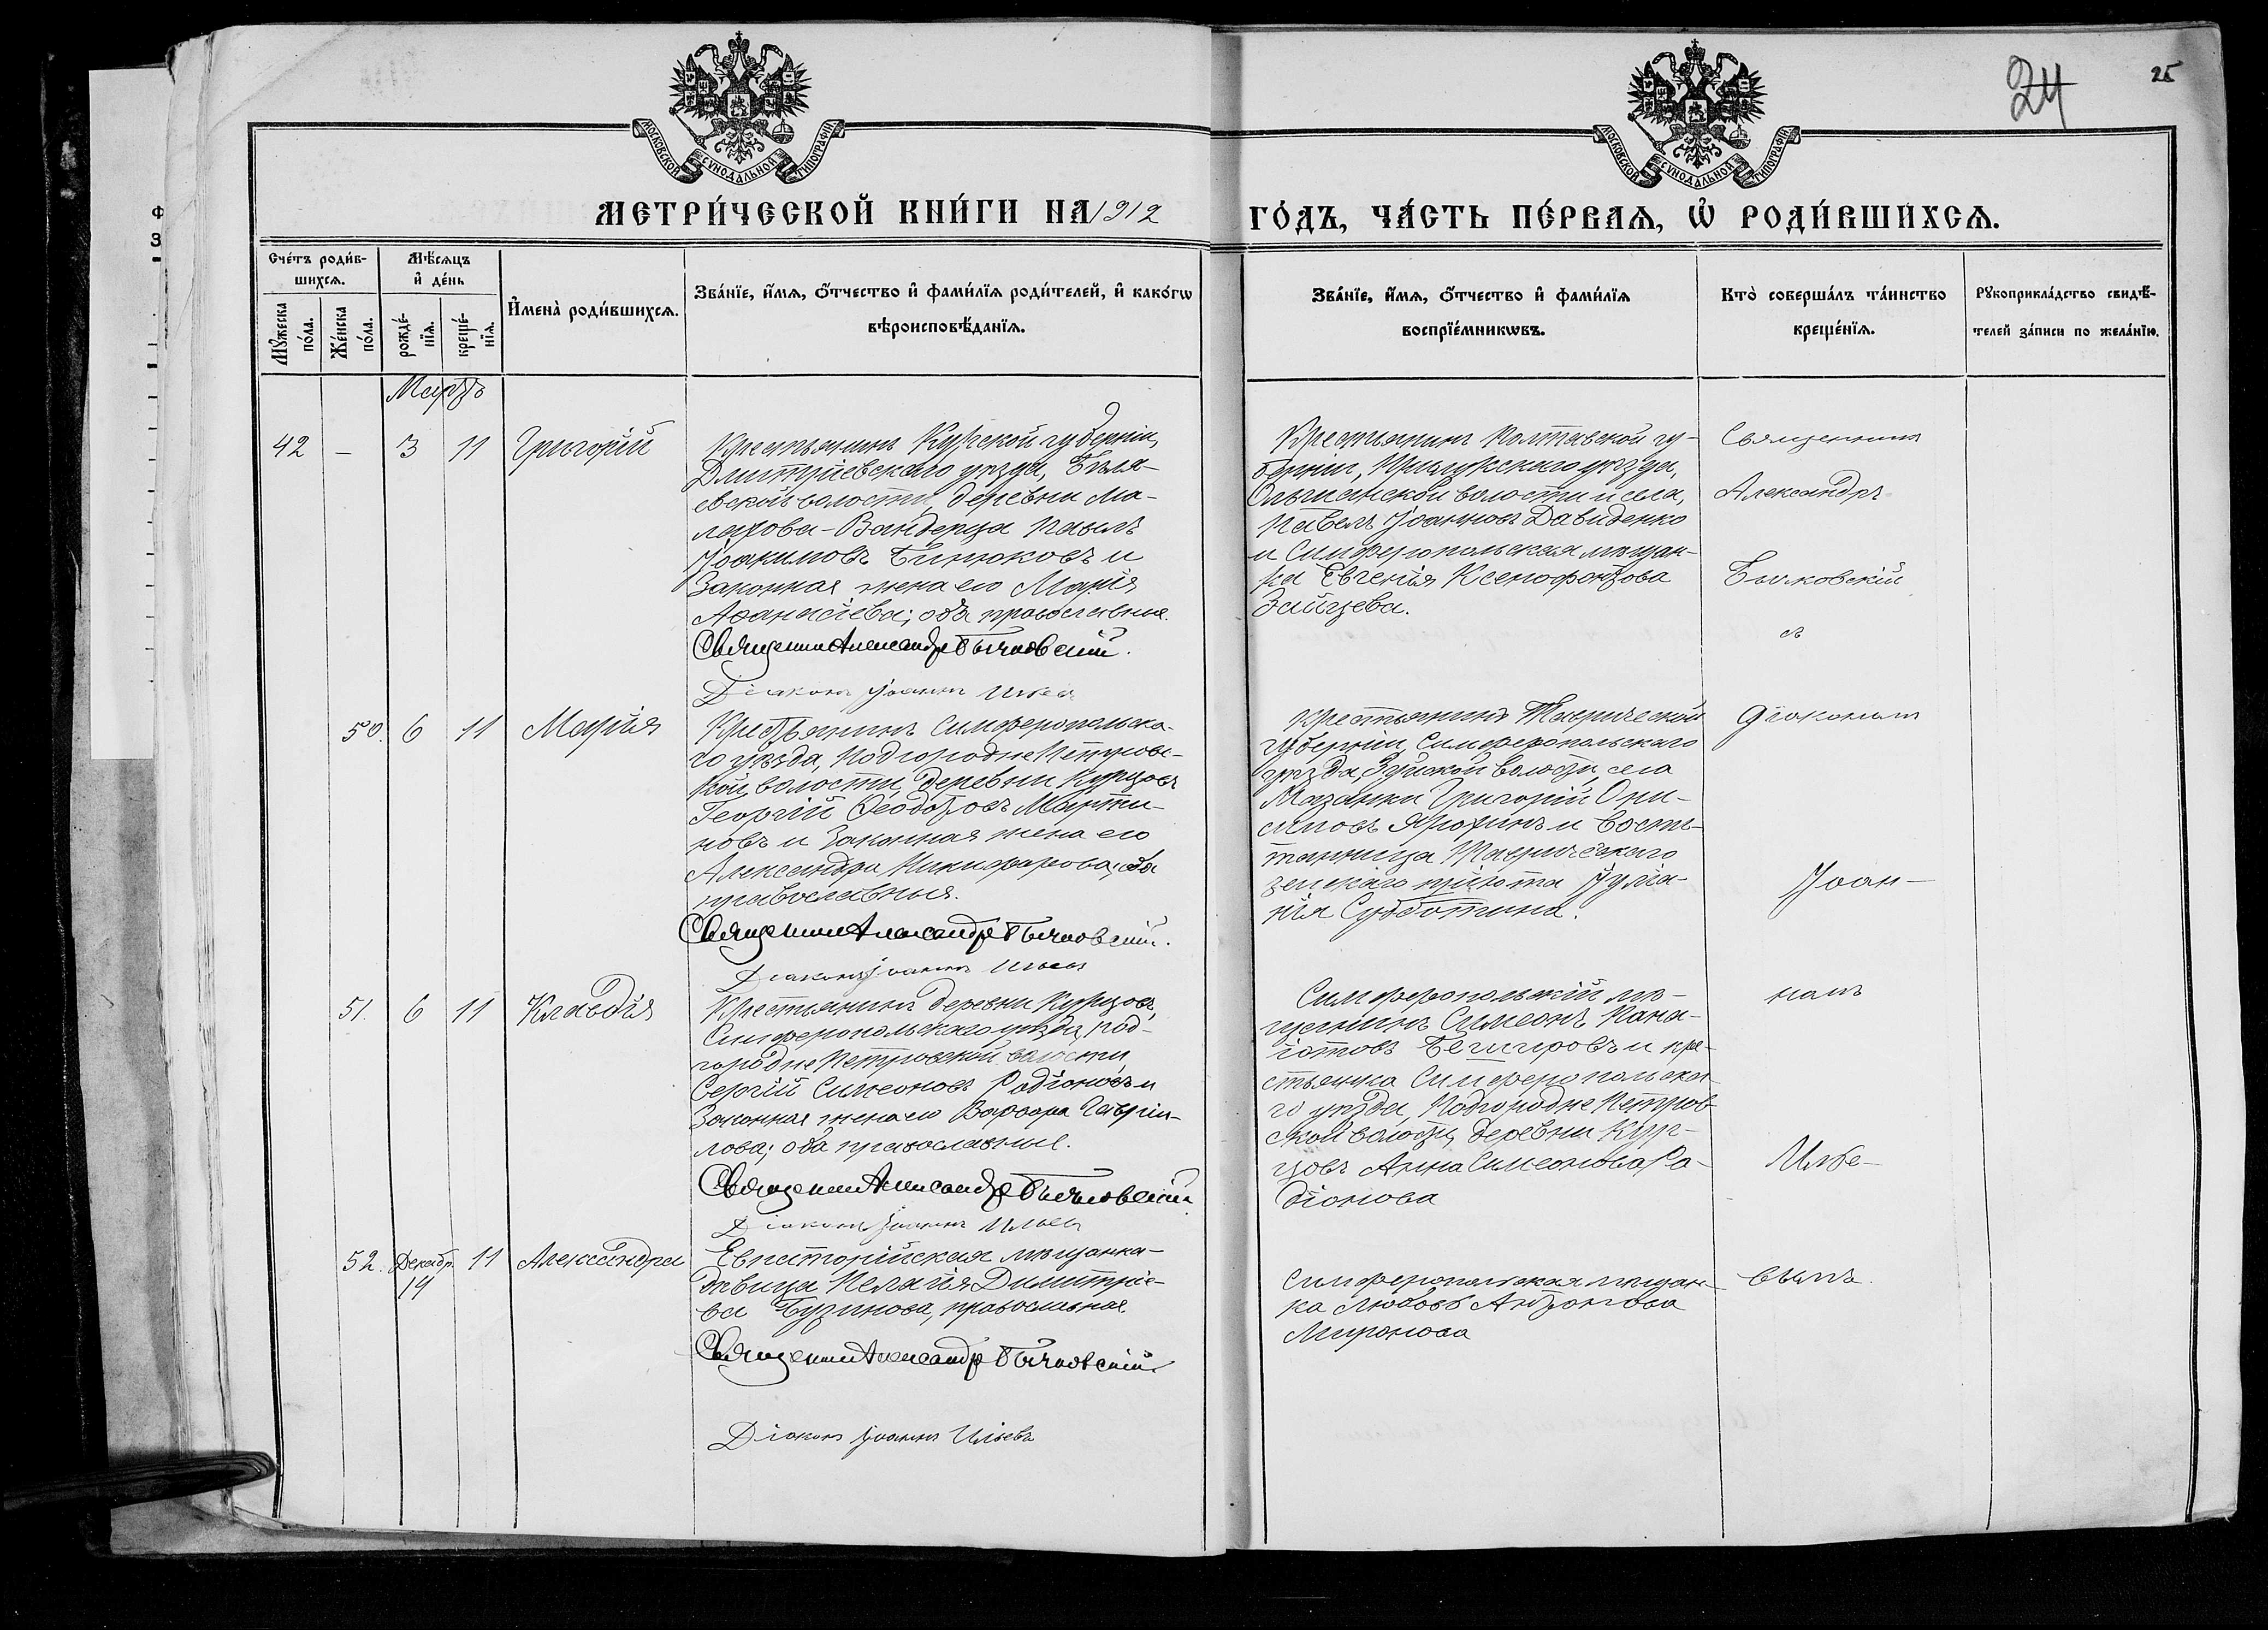 МОСКОВСКОЙ СѴНОДАЛЬНОЙ ТИПОГРАФІИ
МОСКОВСКОЙ СѴНОДАЛЬНОЙ ТИПОГРАФІИ
24
25
МЕТРИ́ЧЕСКОЙ КНИ́ГИ НА 1912
ГО́ДЪ, ЧА́СТЬ ПЕ́РВАѦ, Ѡ҆ РОДИ́ВШИХСѦ.
Сче́тъ роди́в-
шихсѧ.
Мꙋ́жеска
по́ла.
Же́нска
по́ла.
Мѣ́сѧцъ
и҆ де́нь
рожде́-
нїѧ.
креще́-
нїѧ.
И҆мена̀ роди́вшихсѧ.
Зва́нїе, и҆́мѧ, ѻ҆́тчество и҆ фами́лїѧ роди́телей, и҆ како́гѡ
вѣроисповѣ́данїѧ.
Зва́нїе, и҆́мѧ, ѻ҆́тчество и҆ фами́лїѧ
воспрїе́мникѡвъ.
Кто̀ соверша́лъ та́инство
креще́нїѧ.
Рꙋкоприкла́дство свидѣ́-
телей за́писи по жела́нїю.
Мартъ
42 - 3 11 Григорій
Крестьянинъ Курской губерніи,
Дмитріевскаго уѣзда, Бѣля-
евской волости, деревни Ма-
лахова-Вандерца Павелъ
Іоакимовъ Бирюковъ и
Законная жена его Марія
Аѳанасіева; оба православные.
Священникъ Александръ Бычковскій.
Діаконъ Іоаннъ Ильевъ
Крестьянинъ Полтавской гу-
берніи, Прилукскаго уѣзда,
Ольшанской волости и села,
Павелъ Іоанновъ Давиденко
и Симферопольская мѣщан-
ка Евгенія Ксенофонтова
Зайцева.
Священникъ
Александръ
Бычковскій
съ
50. 6 11 Марія
Крестьянинъ Симферопольска-
го уѣзда, Подгородне Петровс-
кой волости, деревни Курцовъ
Георгій Ѳеодотовъ Марты-
новъ и Законная жена его
Александра Никифорова; оба
православные.
Священникъ Александръ Бычковскій.
Діаконъ Іоаннъ Ильевъ
Крестьянинъ Таврической
губерніи, Симферопольскаго
уѣзда, Зуйской волости, села
Мазанки Григорій Они-
симовъ Ярохинъ и воспи-
танница Таврическаго
земскаго пріюта Іуліа-
нія Субботина.
діакономъ
Іоан-
51. 6 11 Клавдія
Крестьянинъ деревни Курцовъ,
Симферопольскаго уѣзда, Под-
городне Петровской волости,
Сергій Симеоновъ Родіоновъ и
Законная жена его Варвара Гаврии-
лова; оба православные.
Священникъ Александръ Бычковскій.
Діаконъ Іоаннъ Ильевъ
Симферопольскій мѣ-
щанинъ Симеонъ Пана-
іотовъ и кре-
стьянка Симферопольска-
го уѣзда, Подгородне Петров-
ской волости, деревни Кур-
цовъ Анна Симеонова Ро-
діонова
номъ
Илье-
52. Декабр. 11 Александра
14
Евпаторійская мѣщанка-
дѣвица Пелагія Димитріе-
ва Бузинова, православная.
Священникъ Александръ Бычковскій
Діаконъ Іоаннъ Ильевъ
Симферопольская мѣщан-
ка Любовь Антонова
Миронова
вымъ.